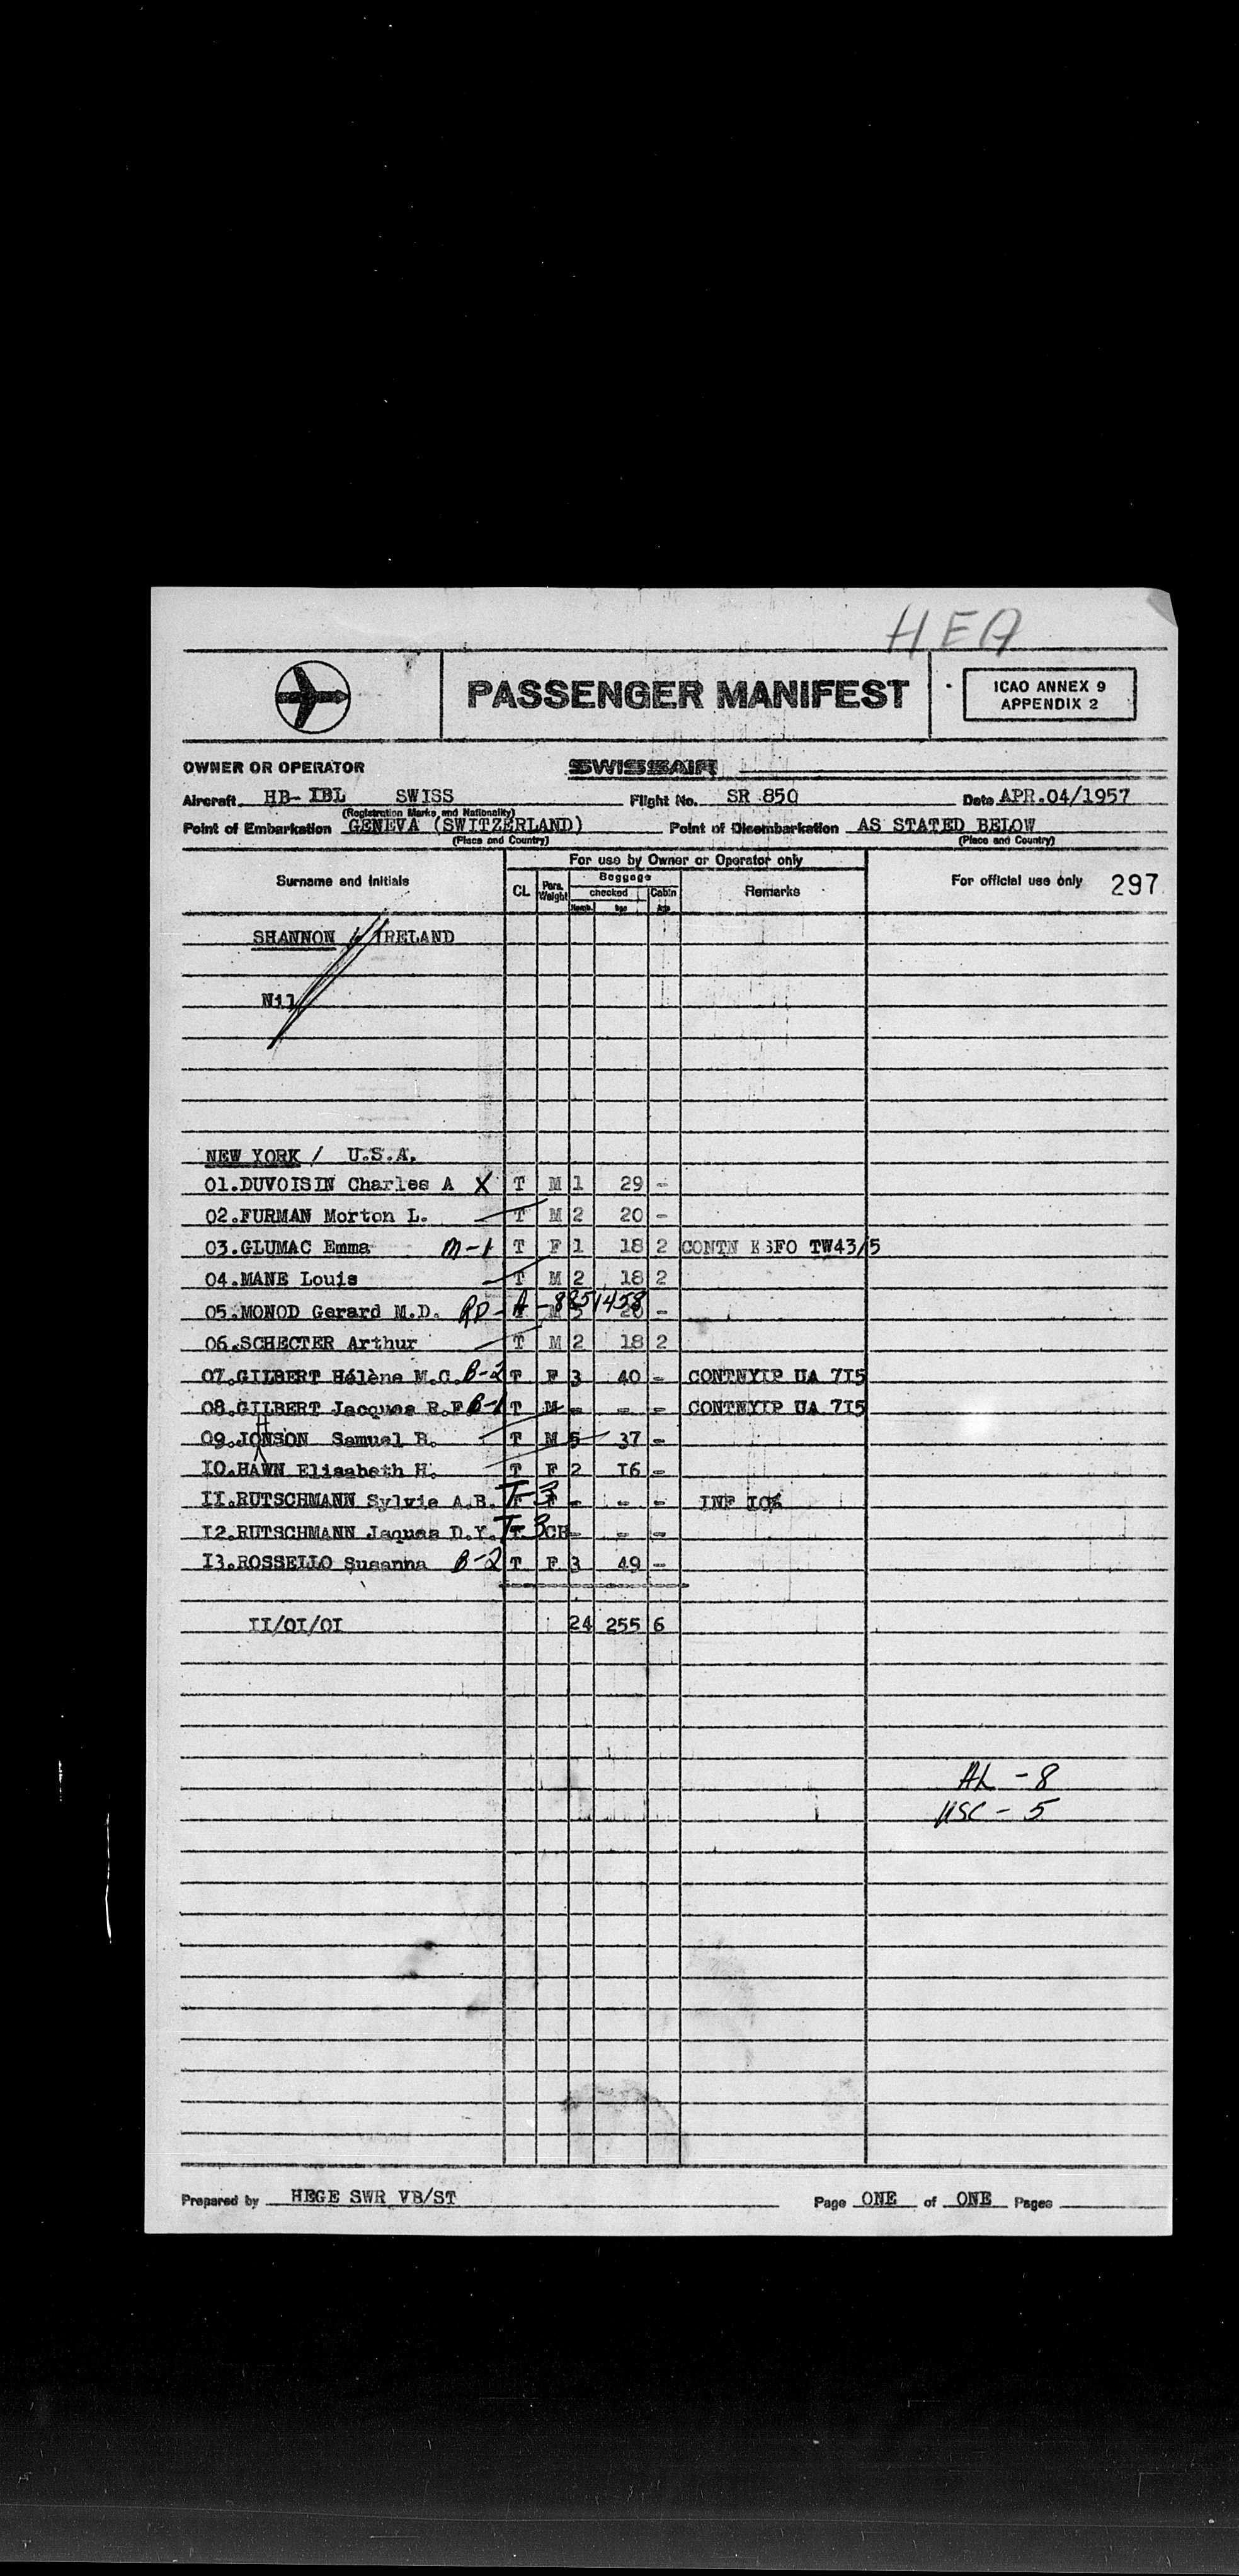 HEA
PASSENGER MANIFEST
ICAO ANNEX 9
APPENDIX 2
OWNER OR OPERATOR SWISSAIR
Aircraft HB-IBL SWISS Flight No. SR 850 Date APR.04/1957
(Registration Marks and Nationality)
Point of Embarkation GENEVA (SWITZERLAND) Point of Disembarkation AS STATED BELOW
(Place and Country) (Place and Country)
For use by Owner or Operator only
Surname and Initials CL Pers. Weight Baggage checked Cabin Remarks For official use only 297
SHANNON / IRELAND
Nil
NEW YORK / U.S.A.
01.DUVOISIN Charles A X T M 1 29 -
02.FURMAN Morton L. T M 2 20 -
03.GLUMAC Emma M-1 T F 1 18 2 CONTN SFO TW43/5
04.MANE Louis T M 2 18 2
05.MONOD Gerard M.D. RP-A-8851458 -
06.SCHECTER Arthur T M 2 18 2
07.GILBERT Hélène M.C. B-2 T F 3 40 - CONTNYIP UA 7I5
08.GILBERT Jacques R.F B-1 T M - - - CONTNYIP UA 7I5
H
09.JONSON Samuel B. T M 5 37 -
I0.HAWN Elisabeth H. T F 2 I6 -
II.RUTSCHMANN Sylvie A.B. T-3 F - - - INF
I2.RUTSCHMANN Jaques D.Y. T-3 CH - - -
I3.ROSSELLO Susanna B-2 T F 3 49 -
II/OI/OI 24 255 6
AL - 8
USC - 5
Prepared by HEGE SWR VB/ST Page ONE of ONE Pages